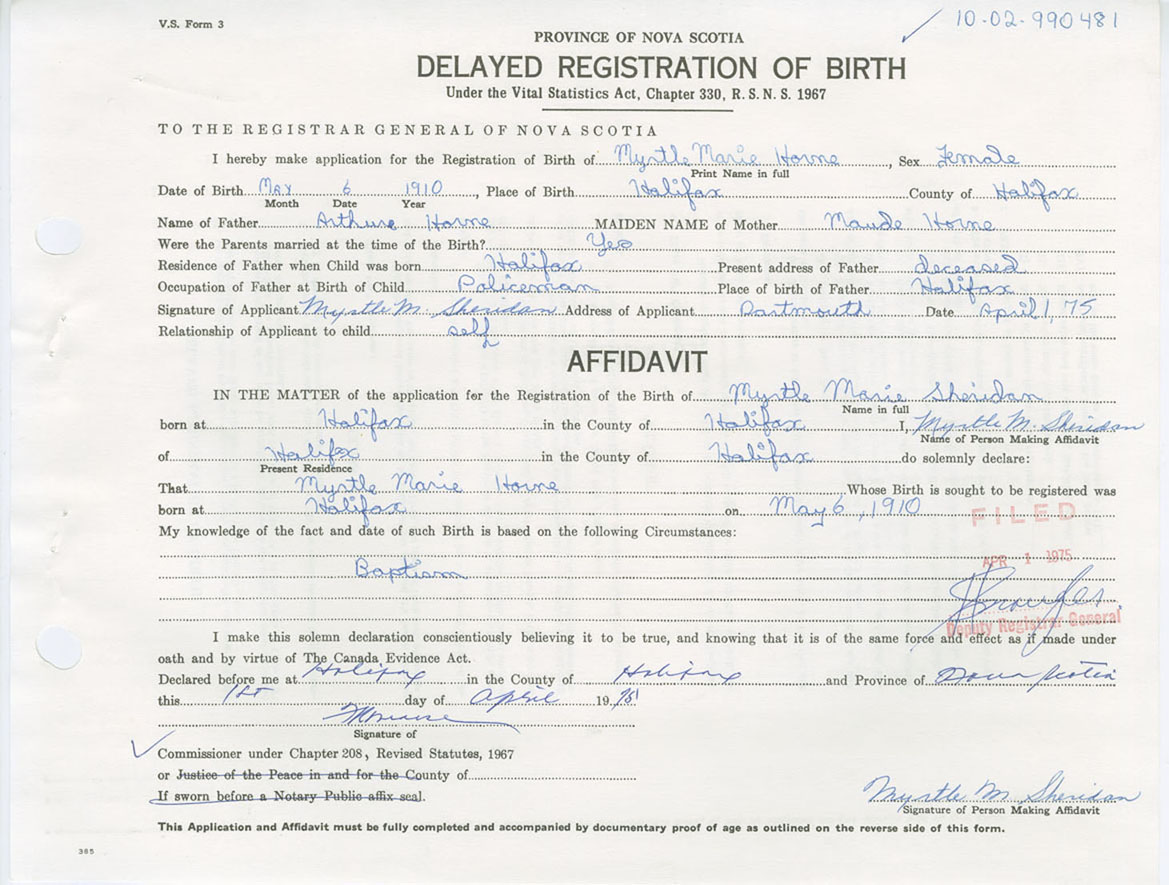 V.S. Form 3
10-02-990481
PROVINCE OF NOVA SCOTIA
DELAYED REGISTRATION OF BIRTH
Under the Vital Statistics Act, Chapter 330, R. S. N. S. 1967
TO THE REGISTRAR GENERAL OF NOVA SCOTIA
I hereby make application for the Registration of Birth of Myrtle Marie Horne, Sex Female
Print Name in full
Date of Birth May 6 1910, Place of Birth Halifax County of Halifax
Month Date Year
Name of Father Arthur Horne MAIDEN NAME of Mother Maude Horne
Were the Parents married at the time of the Birth? Yes
Residence of Father when Child was born Halifax Present address of Father deceased
Occupation of Father at Birth of Child Policeman Place of birth of Father Halifax
Signature of Applicant Myrtle M. Sheridan Address of Applicant Dartmouth Date April 1, 75
Relationship of Applicant to child self
AFFIDAVIT
IN THE MATTER of the application for the Registration of the Birth of Myrtle Marie Sheridan
Name in full
born at Halifax in the County of Halifax I, Myrtle M. Sheridan
Name of Person Making Affidavit
of Halifax in the County of Halifax do solemnly declare:
Present Residence
That Myrtle Marie Horne Whose Birth is sought to be registered was
born at Halifax on May 6, 1910
FILED
My knowledge of the fact and date of such Birth is based on the following Circumstances:
APR 1 1975
Baptism
Deputy Registrar General
I make this solemn declaration conscientiously believing it to be true, and knowing that it is of the same force and effect as if made under
oath and by virtue of The Canada Evidence Act.
Declared before me at Halifax in the County of Halifax and Province of Nova Scotia
this 1st day of April 19 75
Signature of
Commissioner under Chapter 208, Revised Statutes, 1967
or Justice of the Peace in and for the County of
If sworn before a Notary Public affix seal.
Myrtle M. Sheridan
Signature of Person Making Affidavit
This Application and Affidavit must be fully completed and accompanied by documentary proof of age as outlined on the reverse side of this form.
385